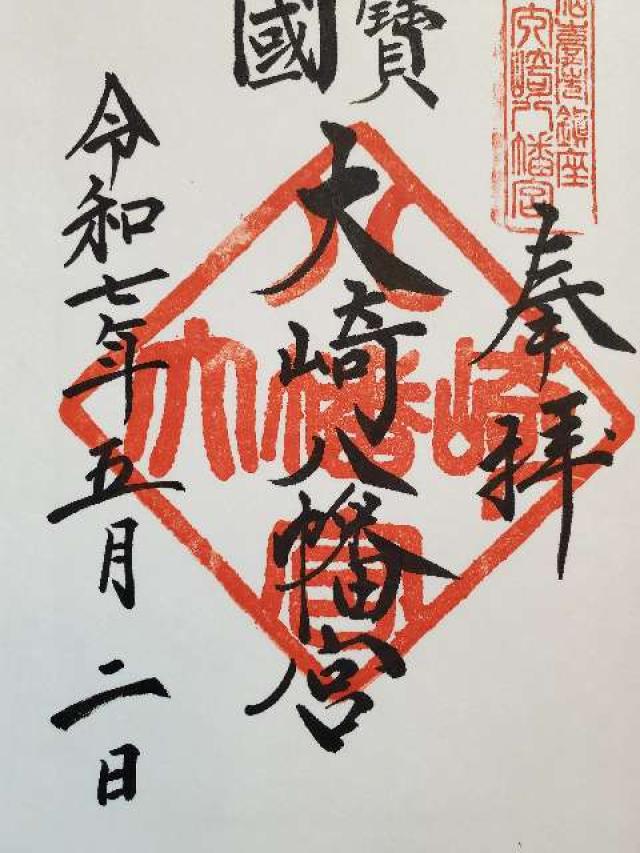 仙臺総鎮座
大崎八幡宮
奉拝
國寶
大崎八幡宮
大崎八幡宮
令和七年五月二日